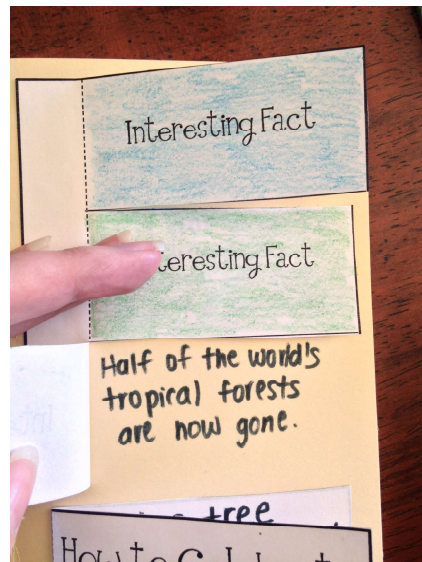 Interesting Fact
teresting Fact
Half of the world's
tropical forests
are now gone.
tree
How to